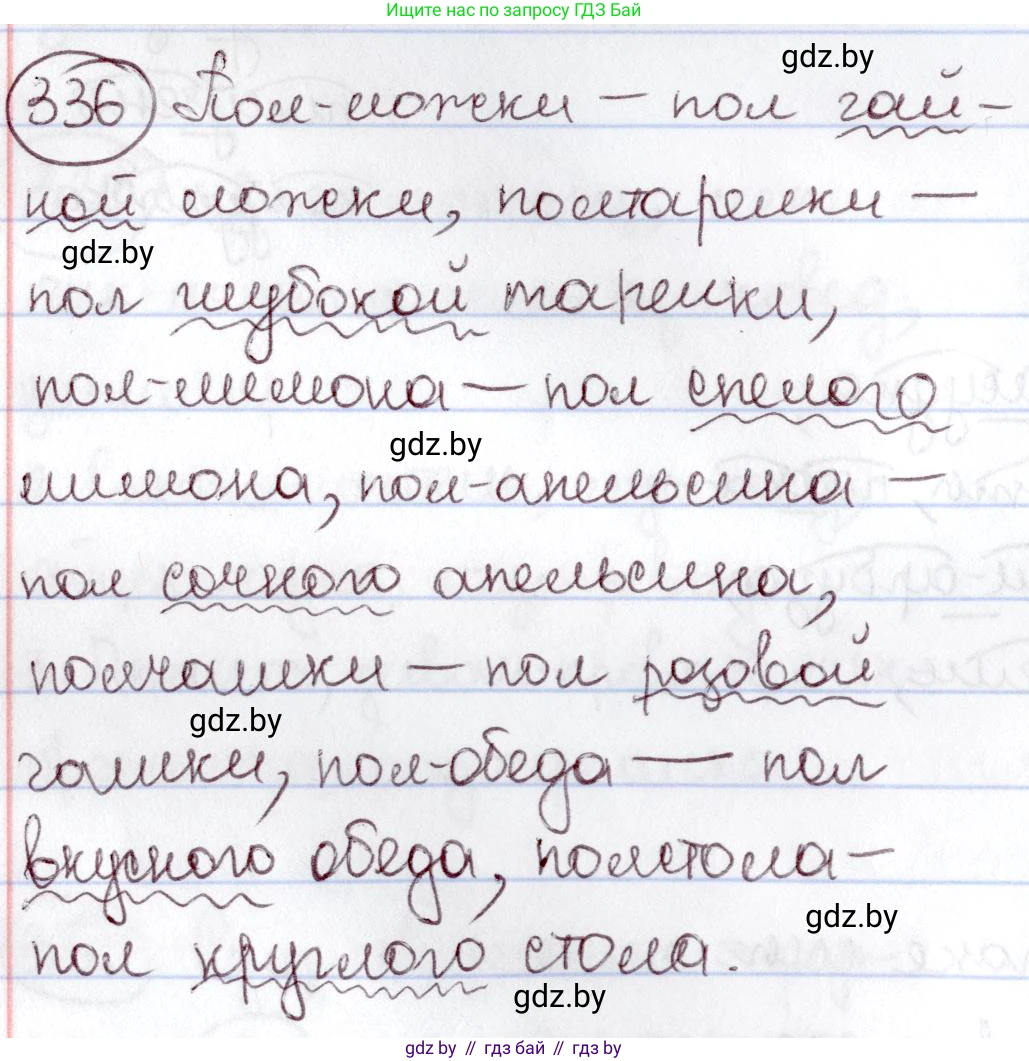 Ищите нас по запросу ГДЗ Бай
gdz.by
336 Пол-ложки – пол чай-
ной ложки, полтарелки –
gdz.by
пол глубокой тарелки,
пол-лимона – пол спелого
gdz.by
лимона, пол-апельсина –
пол сочного апельсина,
полчашки – пол розовой
gdz.by
чашки, пол-обеда – пол
вкусного обеда, полстола –
gdz.by
пол круглого стола.
gdz.by
gdz.by // гдз бай // гдз by